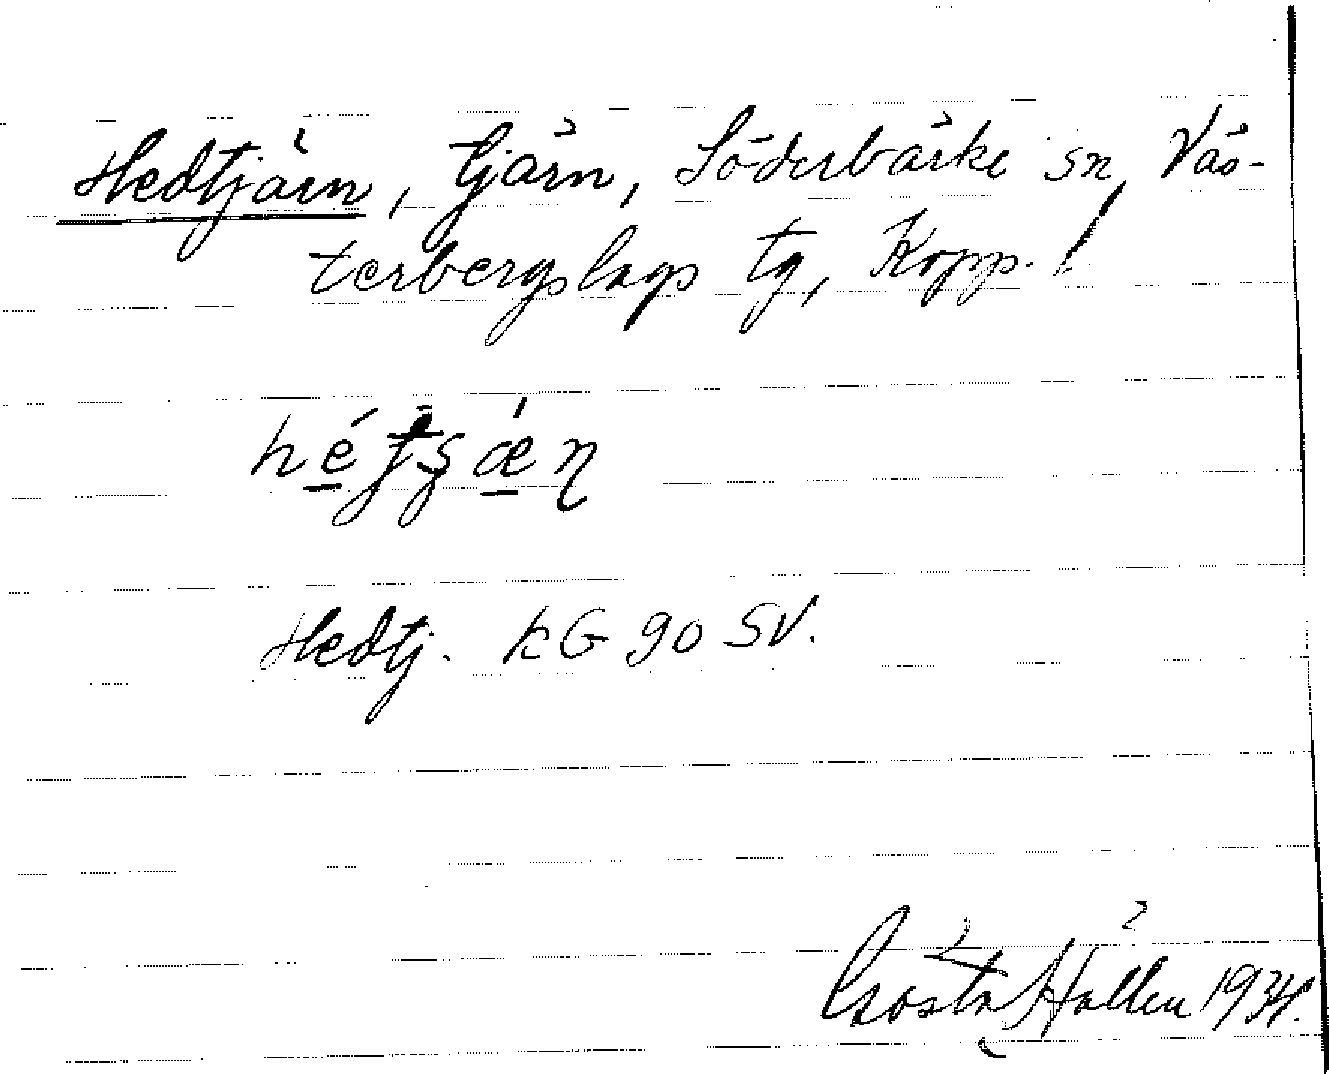 Hedtjärn, tjärn, Söderbärke sn, Väs-
terbergslags tg, Kopp. l
Hedtj. KG 90 SV.
Gösta Hallen 1934.